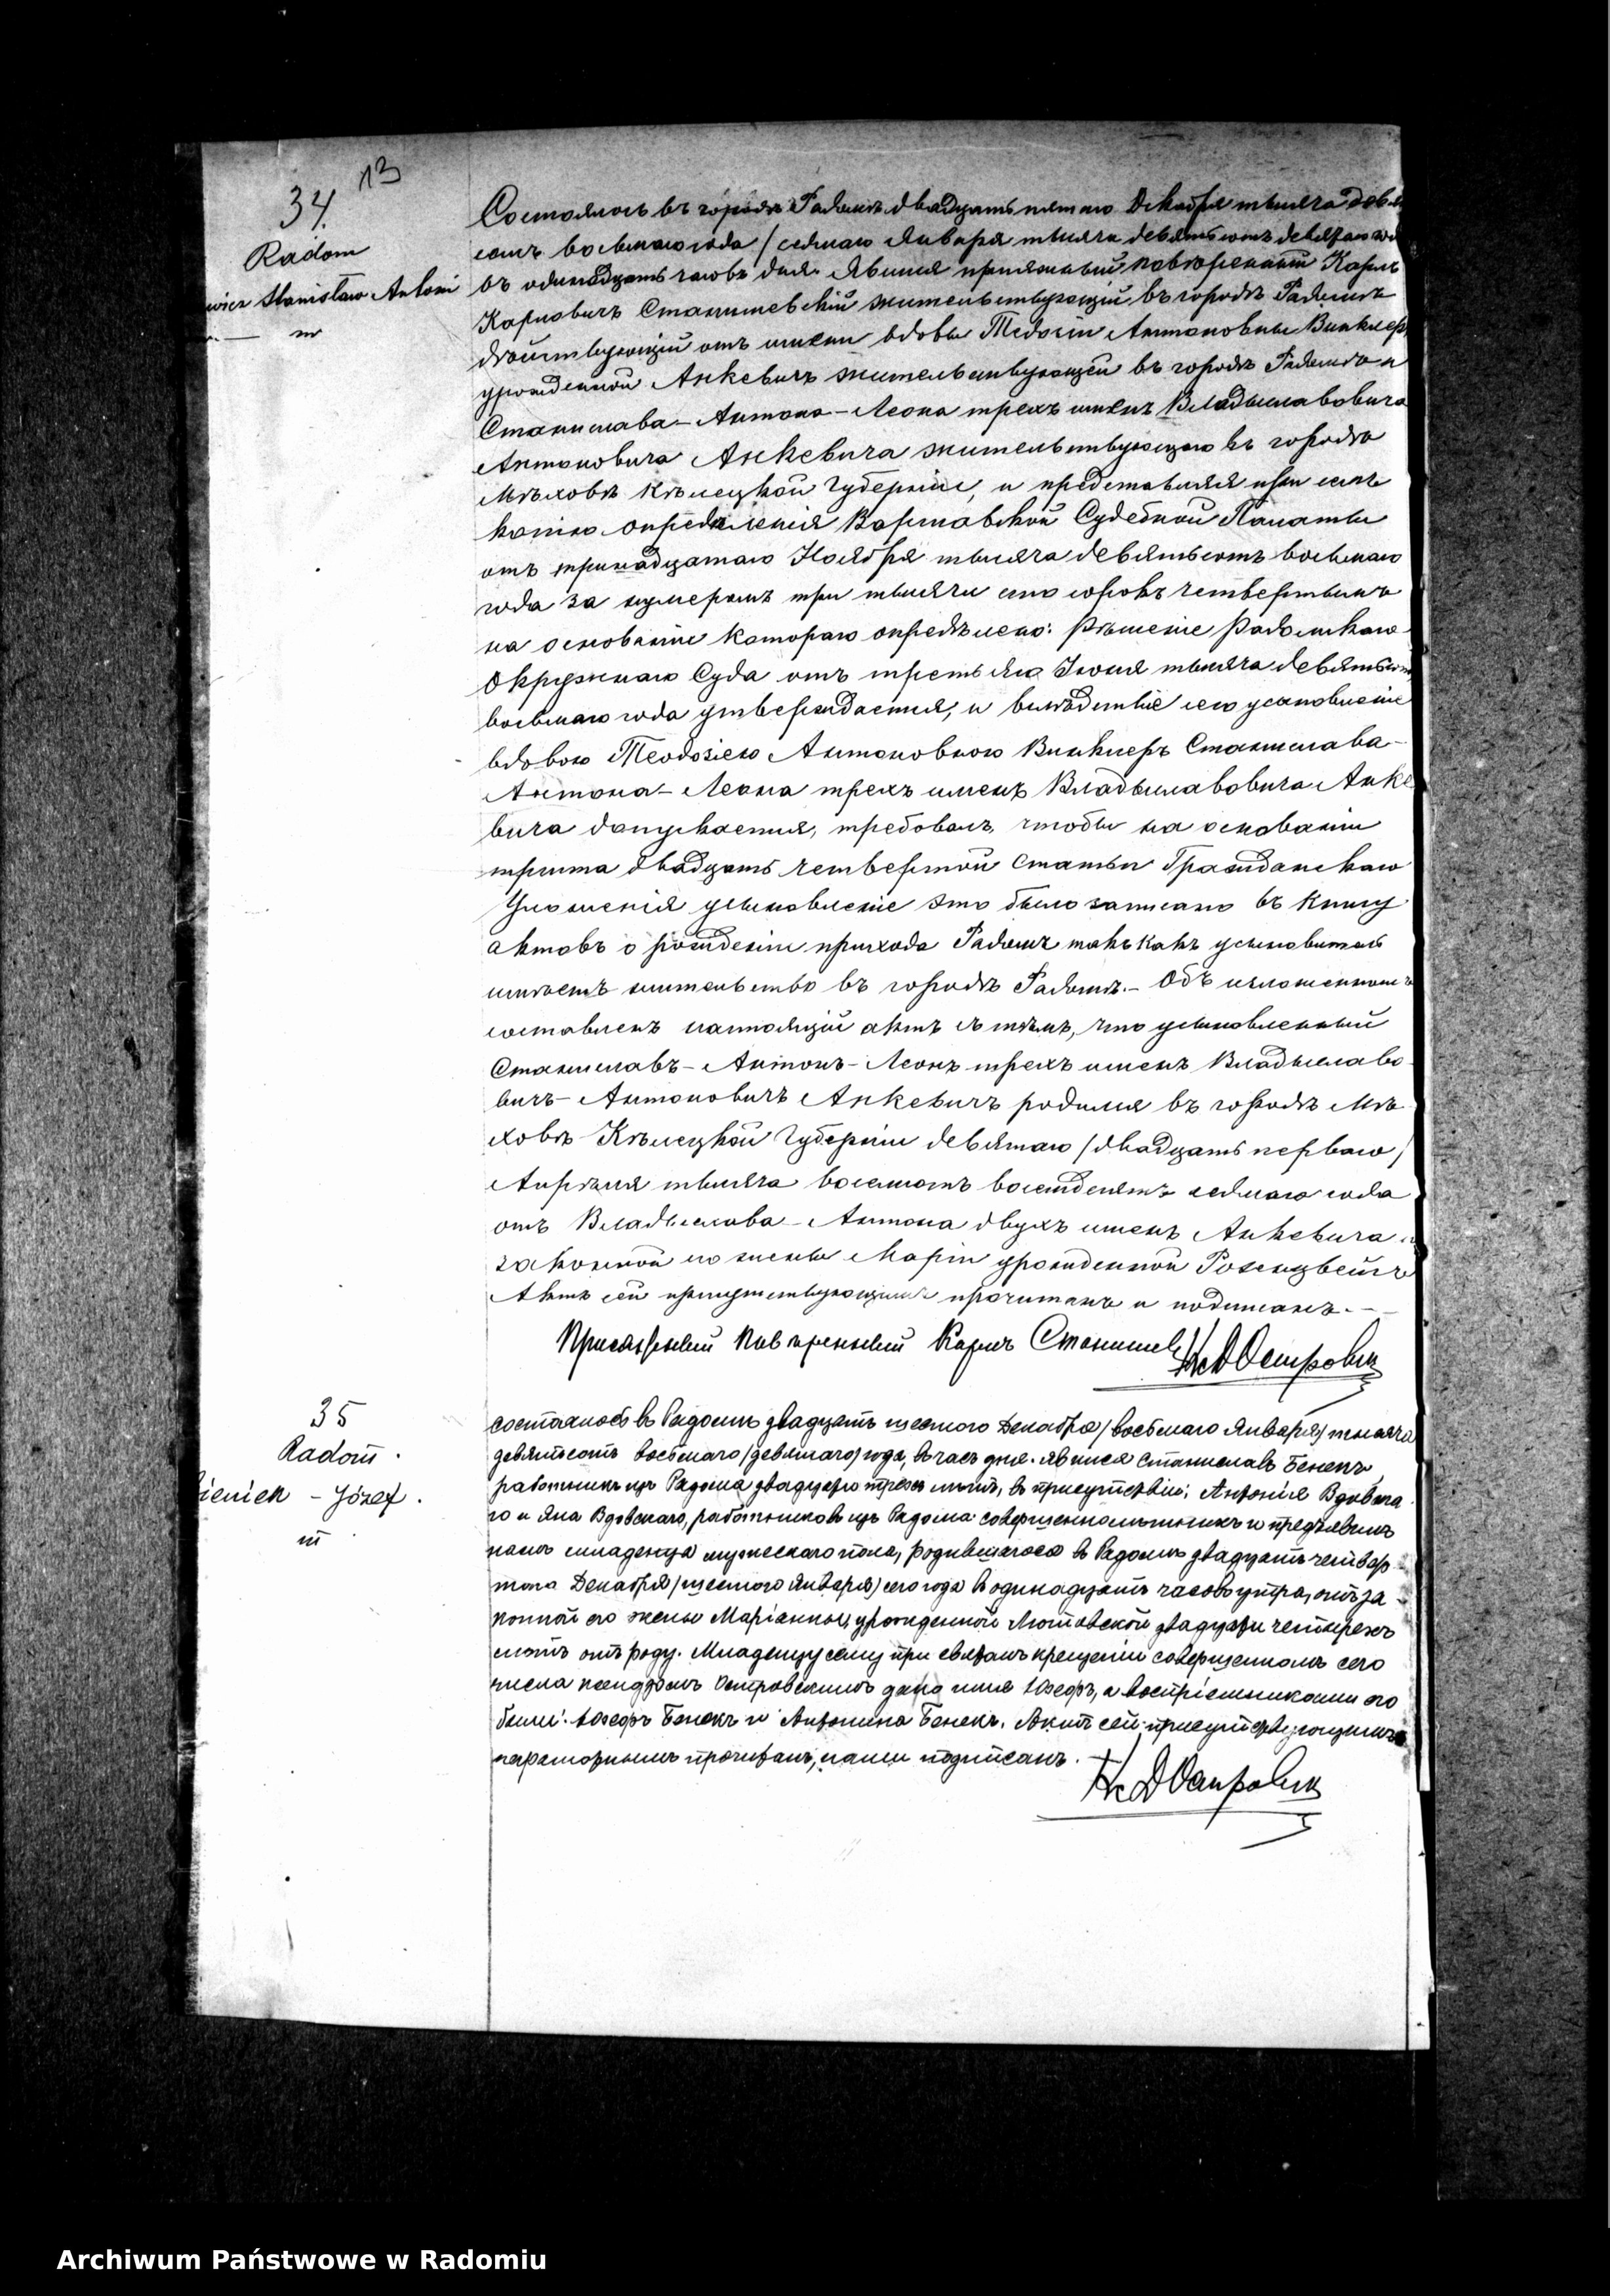 13
34.
Radom
wicz Stanisław Antoni
m
Состоялось въ городѣ Радомѣ двадцать пятаго Декабря тысяча девять
сотъ восьмаго года /седьмаго Января тысяча девятьсотъ девятаго года
въ одинадцать часовъ дня. Явился присяжный повѣренный Карлъ
Карловичъ Станишевскій жительствующій въ городѣ Радомѣ
дѣйствующій отъ имени вдовы Теодозіи Антоновны Винклеръ
урожденной Анкевичъ жительствующей въ городѣ Радомѣ и
Станислава-Антона-Леона трехъ именъ Владыславовича
Антоновича Анкевича жительствующаго въ городѣ
Мѣховѣ Кѣлецкой Губерніи, и представляя при семъ
копію опредѣленія Варшавской Судебной Палаты
отъ тринадцатаго Ноября тысяча девятьсотъ восьмаго
года за нумеромъ три тысячи сто сорокъ четвертымъ
на основаніи котораго опредѣлено: рѣшеніе Радомскаго
Окружнаго Суда отъ третьяго Іюня тысяча девятьсотъ
восьмаго года утверждается, и вслѣдствіе сего усыновленіе
вдовою Теодозіею Антоновною Винклеръ Станислава-
Антона-Леона трехъ именъ Владыславовича Анке
вича допускается, требовалъ, чтобы на основаніи
триста двадцать четвертой статьи Гражданскаго
Уложенія усыновленіе это было записано въ книгу
актовъ о рожденіи прихода Радомъ такъ какъ усыновитель
имѣетъ жительство въ городѣ Радомѣ.- Объ изложенномъ
составленъ настоящій актъ съ тѣмъ, что усыновленный
Станиславъ-Антонъ-Леонъ трехъ именъ Владыславо
вичъ-Антоновичъ Анкевичъ родился въ городѣ Мѣ
ховѣ Кѣлецкой Губерніи девятаго /двадцать перваго/
Апрѣля тысяча восемьсотъ восемдесятъ седьмаго года
отъ Владыслава-Антона двухъ именъ Анкевича и
законной его жены Маріи урожденной Розенцвейгъ
Актъ сей присутствующимъ прочитанъ и подписанъ.-
Присяжный Повѣренный Карлъ Станишевскій
Кс Д Островск
35
Radom.
Bieniek - Józef.
m
Состоялось въ Радомѣ двадцать шестого Декабря/восьмаго Января/тысяча
девятьсотъ восьмаго/девятаго/года, въ часъ дня. Явился Станиславъ Бенекъ,
работникъ изъ Радома двадцати трехъ лѣтъ, въ присутствіи: Антонія Вдовска
го и Яна Вдовскаго, работниковъ изъ Радома совершеннолѣтнихъ и предъявилъ
намъ младенца мужескаго пола, родившагося въ Радомѣ двадцать четвер
того Декабря/шестого Января/сего года въ одинадцать часовъ утра, отъ за-
конной его жены Маріанны, урожденной двадцати четырехъ
лѣтъ отъ роду. Младенцу сему при святомъ крещеніи совершенномъ сего
числа ксендзомъ Островскимъ дано имя Юзефъ, а воспріемниками его
были: Юзефъ Бенекъ и Антонина Бенекъ. Актъ сей присутствующимъ
неграмотнымъ прочитанъ, нами подписанъ.
Кс Д Островск
Archiwum Państwowe w Radomiu